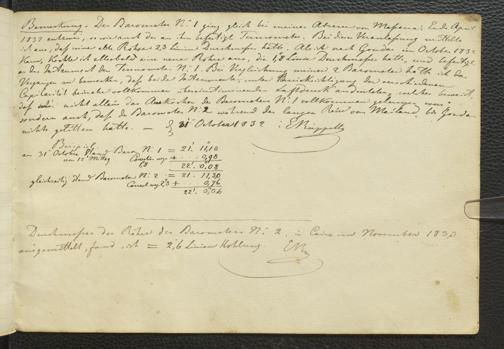 Bemerkung. Der Barometer N: 1 ging gleich bei meiner Abreise von Massaua, Ende April
1832 entzwei, so wie auch der an ihm befestigte Termometer. Bei dieser Veranlassung
ich aus, daß seine alte Röhre 2,3 Linien Durchmesser hatte. Als ich nach Gondar im October 1832
kam, kochte ich allsobald eine neue Röhre aus, die 1,8 Linien Durchmesser hatte, und befestigte
an das Instrument den Termometer N: 1. Bei Vergleichung meiner 2 Barometer hatte ich das
Vergnügen zu bemerken, daß beide Instrumente, unter Berücksichtigung der verschiedenen
Capilarität beinahe vollkommen übereinstimmenden Luftdruck andeuteten, welches beweist,
daß nicht allein das Auskochen des Barometers N: 1 vollkommen gelungen war,
sondern auch, daß der Barometer N: 2 während der langen Reise von Mailand bis Gondar
nichts gelitten hatte. — 31 October 1832 : E Rüppell
Beispiel
am 31 October Stand Baro. N: 1 = 21. 11,10
um 12 Mittag + 0,98
22. 0,08
gleichzeitig Stand Barometer N: 2 = 21. 11,30
2,3 + 0,76
22. 0,06
Durchmesser der Röhre des Barometers N: 2, in Cairo im November 1833
ausgemittelt, fand ich = 2,6 Linien Hohlung. ER